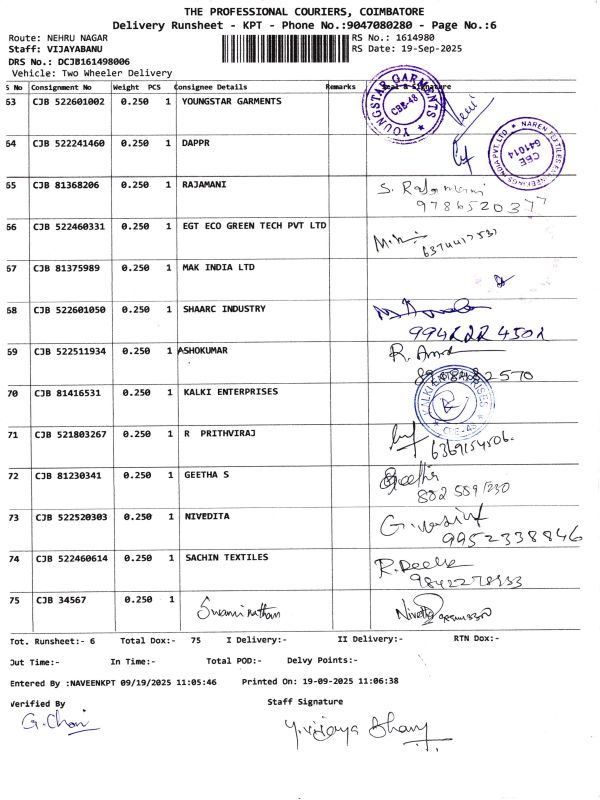 THE PROFESSIONAL COURIERS, COIMBATORE
Delivery Runsheet - KPT - Phone No.:9047080280 - Page No.:6
Route: NEHRU NAGAR RS No.: 1614980
Staff: VIJAYABANU RS Date: 19-Sep-2025
DRS No.: DCJB161498006
Vehicle: Two Wheeler Delivery
S No Consignment No Weight PCS Consignee Details Remarks Seal & Signature
63 CJB 522601002 0.250 1 YOUNGSTAR GARMENTS
YOUNGSTAR GARMENTS CBE-48
64 CJB 522241460 0.250 1 DAPPR
CBE 641014
65 CJB 81368206 0.250 1 RAJAMANI S. Rajamani
9786520377
66 CJB 522460331 0.250 1 EGT ECO GREEN TECH PVT LTD
67 CJB 81375989 0.250 1 MAK INDIA LTD
68 CJB 522601050 0.250 1 SHAARC INDUSTRY
69 CJB 522511934 0.250 1 ASHOKUMAR
70 CJB 81416531 0.250 1 KALKI ENTERPRISES
KALKI ENTERPRISES CBE-48
71 CJB 521803267 0.250 1 R PRITHVIRAJ
6369154506.
72 CJB 81230341 0.250 1 GEETHA S Geetha
73 CJB 522520303 0.250 1 NIVEDITA
9952338846
74 CJB 522460614 0.250 1 SACHIN TEXTILES
75 CJB 34567 0.250 1 Swaminathan
Tot. Runsheet:- 6 Total Dox:- 75 I Delivery:- II Delivery:- RTN Dox:-
Out Time:- In Time:- Total POD:- Delvy Points:-
Entered By :NAVEENKPT 09/19/2025 11:05:46 Printed On: 19-09-2025 11:06:38
Verified By Staff Signature